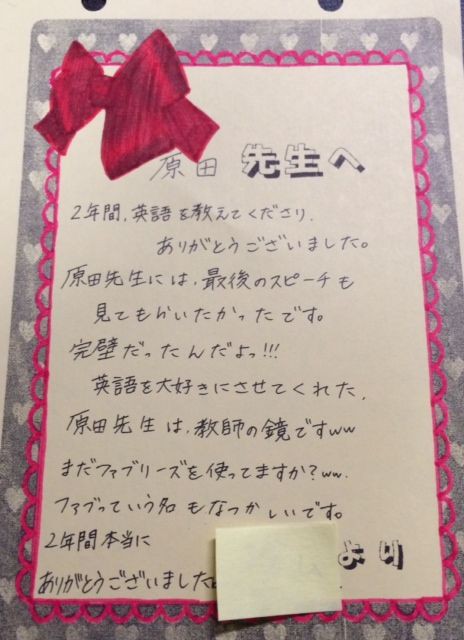 原田 先生へ
2年間、英語を教えてくださり、
ありがとうございました。
原田先生には、最後のスピーチも
見てもらいたかったです。
完璧だったんだよっ!!!
英語を大好きにさせてくれた、
原田先生は、教師の鏡ですww
まだファブリーズを使ってますか?ww.
ファブっていう名もなつかしいです。
2年間本当に
ありがとうございました。
より